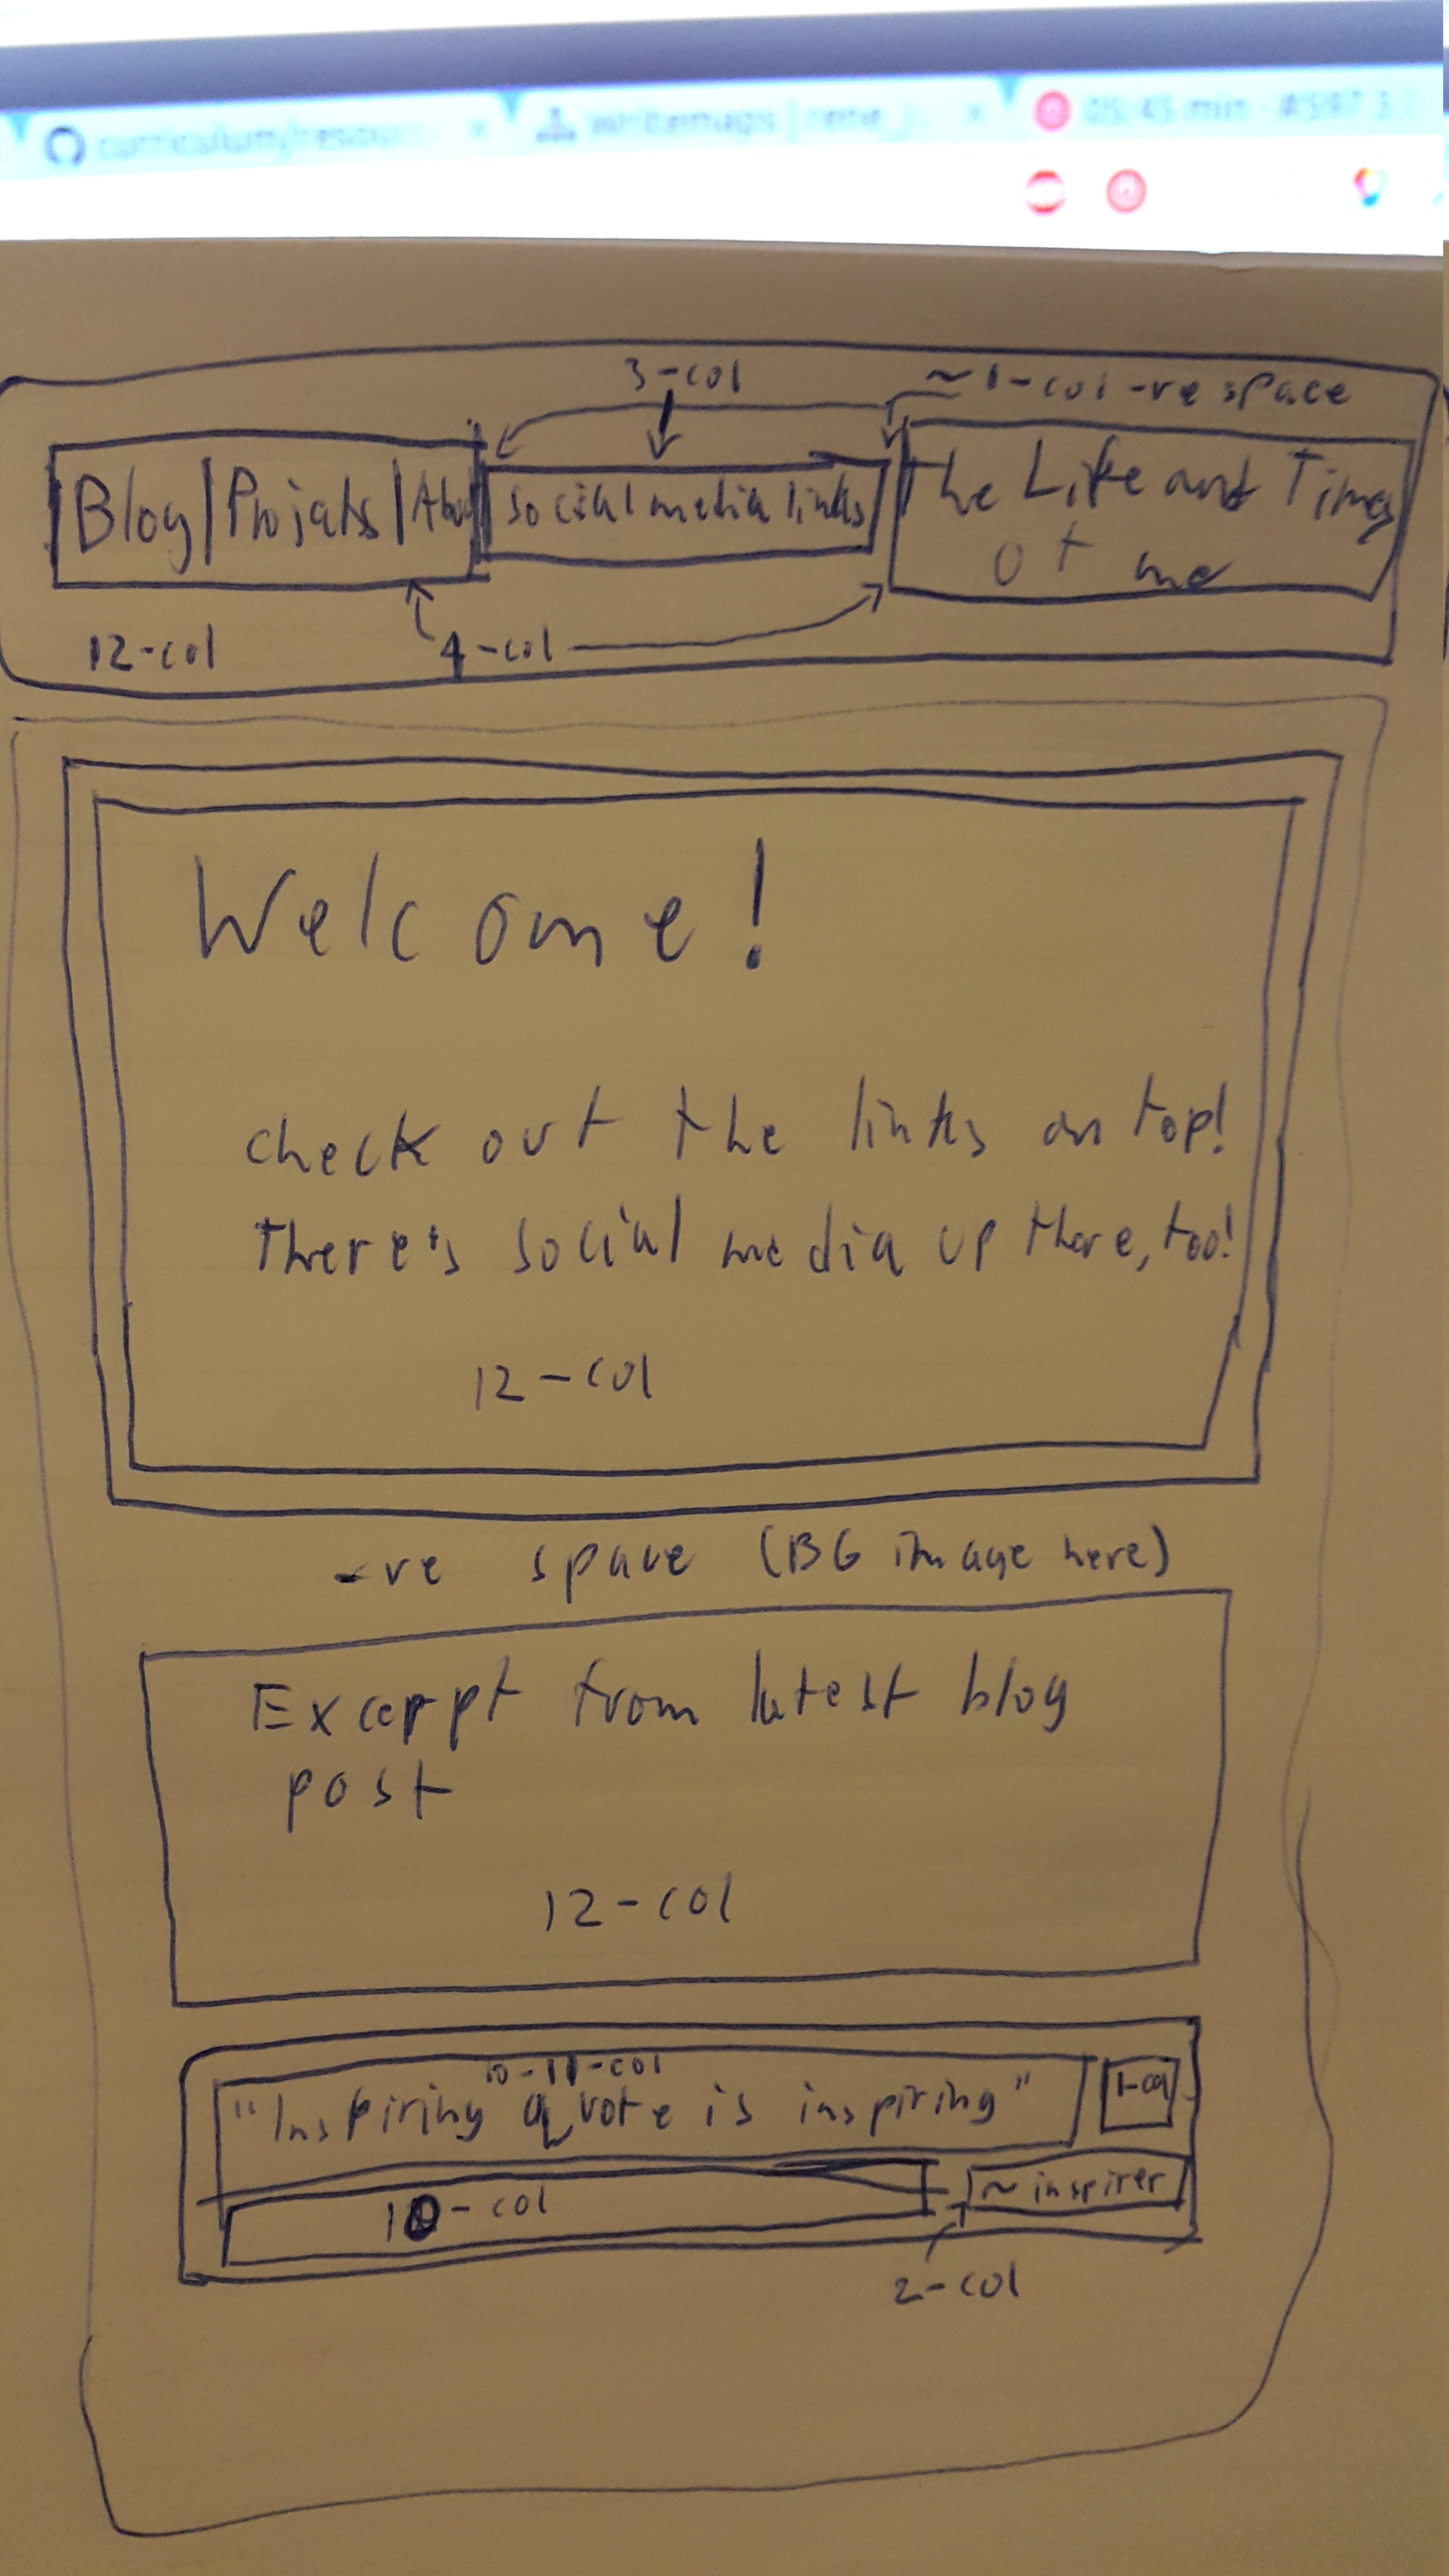 curriculum/resour
writemaps | rene_j
05:45 min - #597 3.
3-col
~1-col -ve space
Blog | Projects | Abou
social media links
The Life and Times
of me
12-col
4-col
Welcome!
check out the links on top!
There's social media up there, too!
12-col
-ve space (BG image here)
Excerpt from latest blog
post
12-col
10-11-col
"Inspiring quote is inspiring"
1-col
10-col
~ inspirer
2-col